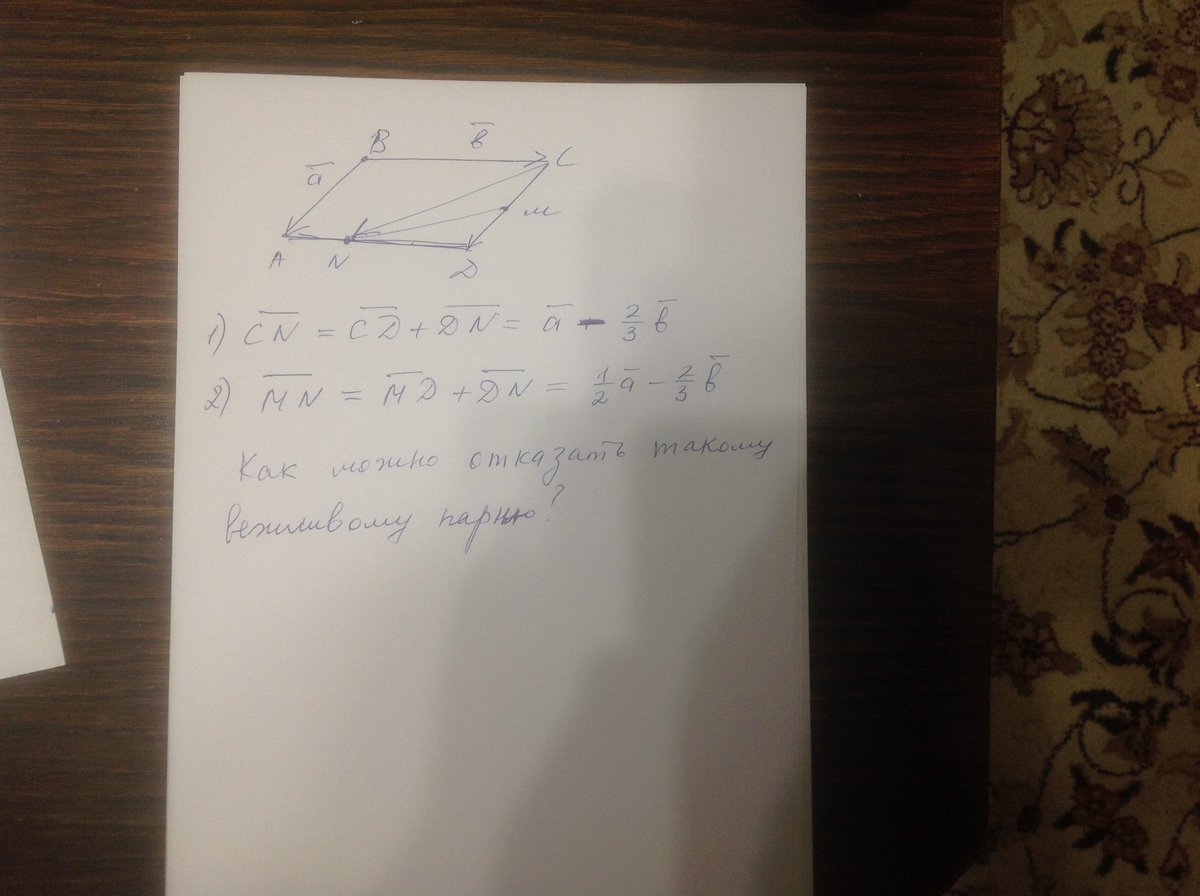 B
b̅
C
a̅
м
A
N
D
1) C̅N̅ = C̅D̅ + D̅N̅ = a̅ - 2/3 b̅
2) M̅N̅ = M̅D̅ + D̅N̅ = 1/2 a̅ - 2/3 b̅
Как можно отказать такому
вежливому парню?